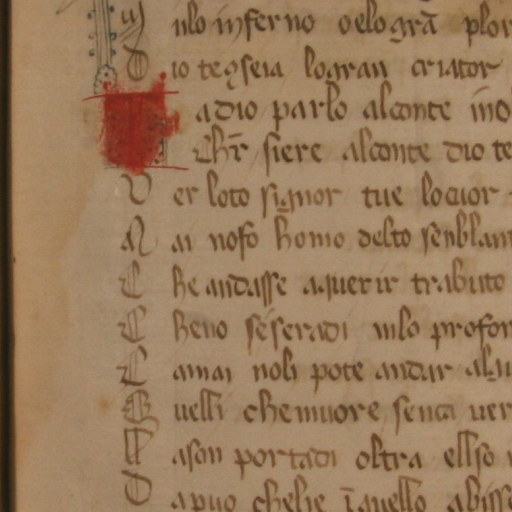 nlo inferno oelo grā plor
D io te q̄seia lo gran criator
adio parlo alconte ino
Chr̄ siere alconte dio te
V er loto signor tue locuor
M ai no fo homo delto senblan
C he andasse aquerir trabuto
C he no se seradi nlo profon
C amai noli pote andar alu
Q uelli che muore senca ver
M a son portadi oltra ellso
D apuo chel he ī quello abiss